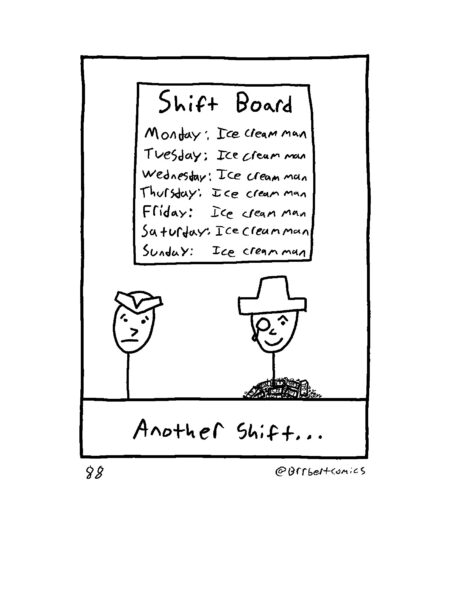 Shift Board
Monday: Ice cream man
Tuesday: Ice cream man
Wednesday: Ice cream man
Thursday: Ice cream man
Friday: Ice cream man
Saturday: Ice cream man
Sunday: Ice cream man
Another Shift...
88
@Brrbertcomics